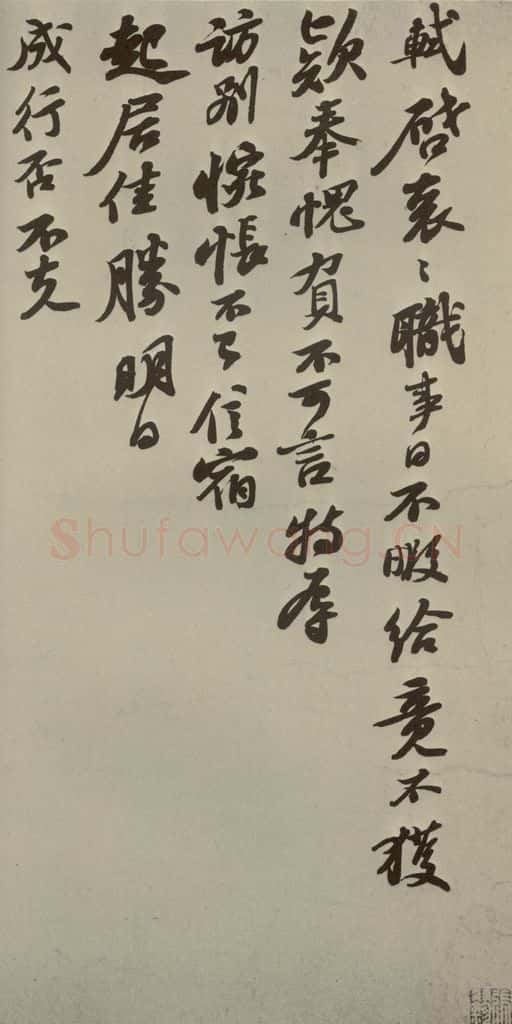 軾啓袁〻職事日不暇給竟不獲
款奉愧負不可言特辱
訪別惋悵不已信宿
起居佳勝明日
成行否不克
Shufawang.CN